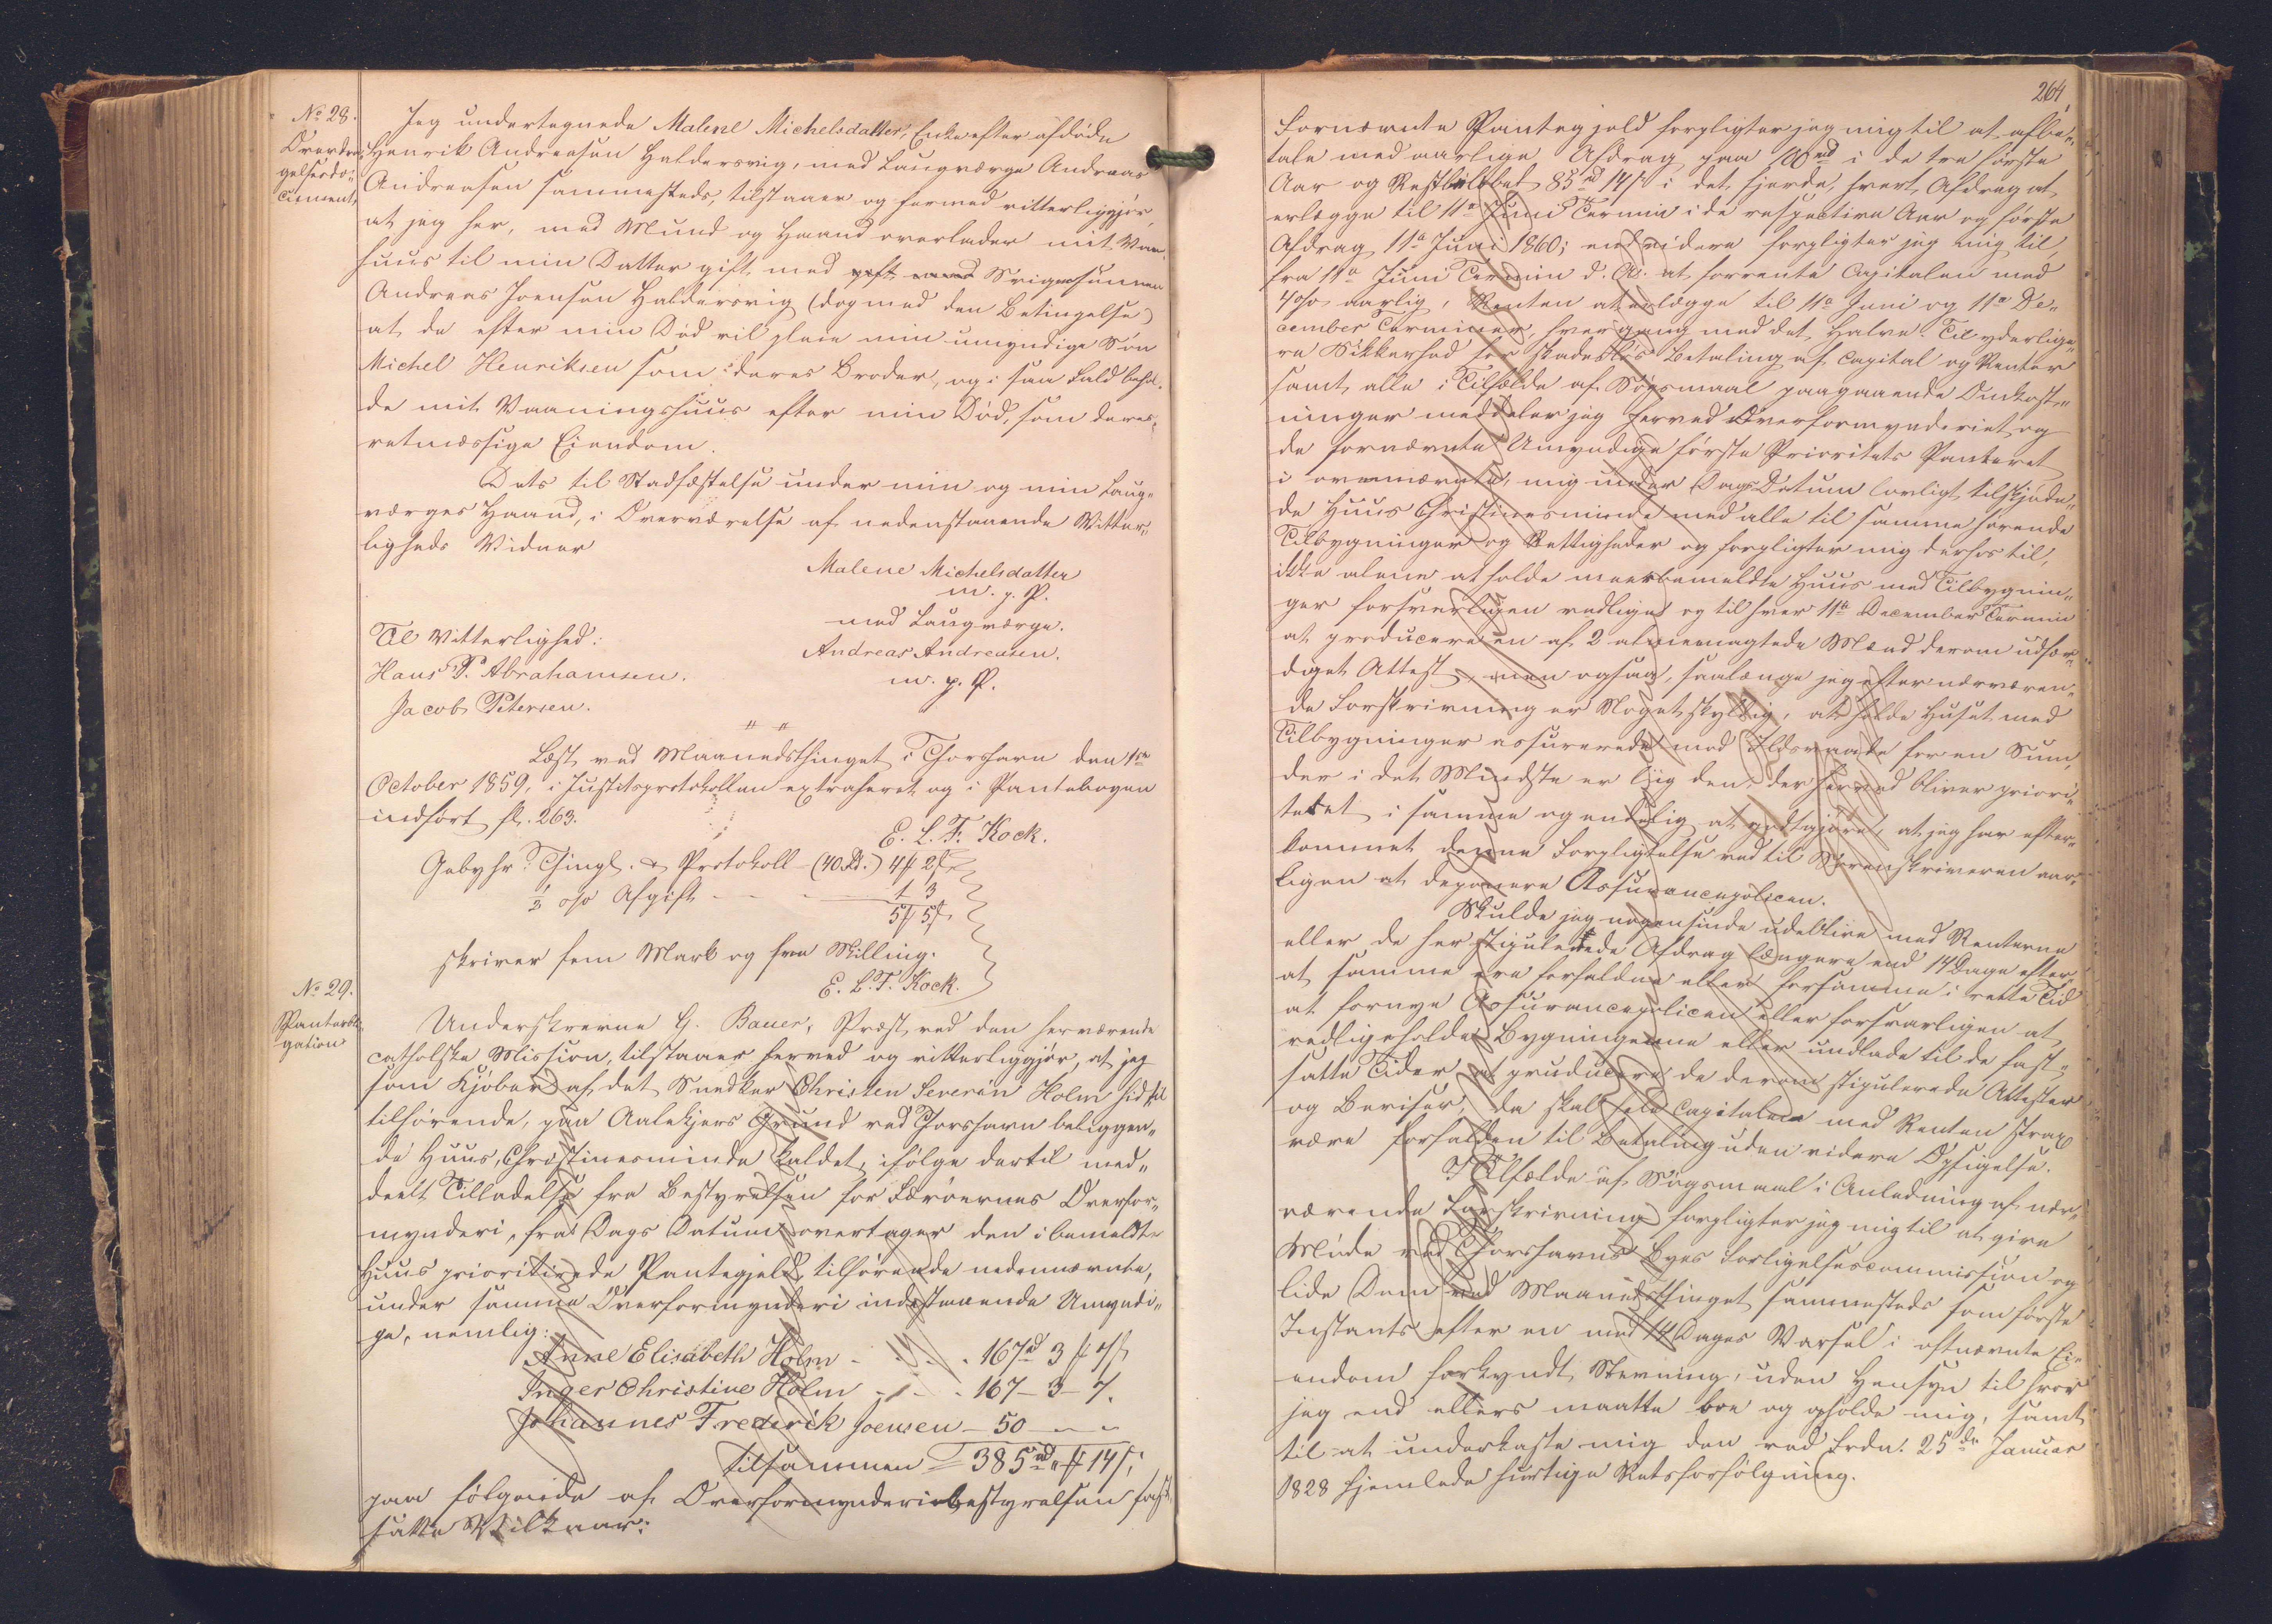 No 28.
Overdra-
gelsesdo-
cument,
Jeg undertegnede Malene Michelsdatter, Enke efter afdøde
Henrik Andreasen Haldersvig, med Laugværge Andreas
Andreasen sammesteds, tilstaaer og hermed vitterliggjør,
at jeg her, med Mund og Haand overlader mit Vaa-
huus til min Datter gift med gift med Svigersønnen
Andreas Joensen Haldersvig (dog med den Betingelse)
at de efter min Død vil pleie min umyndige Søn
Michel Henriksen som deres Broder, og i saa Fald behol-
de mit Vaaningshuus efter min Død, som deres
retmæssige Eiendom.
Dets til Stadfæstelse under min og min Laug-
værges Haand, i Overværelse af nedenstaaende Vitter-
ligheds Vidner
Malene Michelsdatter
m. p. P.
med Laugværge.
Til Vitterlighed:
Andreas Andreasen.
Hans P. Abrahamsen.
m. p. P.
Jacob Petersen.
" "
Læst ved Maanedsthinget i Thorshavn den 1ste
October 1859, i Justitsprotokollen extraheret og i Pantebogen
indført fl. 263.
E. L. T. Kock.
Gebyhr: Thingl. & Protokoll (40 Rd.) 4 2
½ o/o Afgift 1 3
5 5
skriver fem Mark og fem Skilling.
E. L. T. Kock.
No 29.
Panteobli-
gation
Underskrevne G. Bauer, Præst ved den herværende
catholske Mission, tilstaaer herved og vitterliggjør, at jeg
som Kjøber af det Snedker Christen Severin Holm hidtil
tilhørende, paa Aalekjers Grund ved Thorshavn beliggen-
de Huus, Christinesminde kaldet, ifølge dertil med-
deelt Tilladelse fra Bestyrelsen for Færøernes Overfor-
mynderi, fra Dags Datum overtager den i bemeldte
Huus prioriterede Pantegjeld, tilhørende nedennævnte,
under samme Overformynderi indestaaende Umyndi-
ge, nemlig:
Anne Elisabeth Holm - - - 167rd 3 7
Inger Christine Holm - - - 167 - 3 - 7.
Johannes Frederik Joensen - 50 - " - "
tilsammen = 385rd " 14;
paa følgende af Overformynderibestyrelsen fast-
satte Vilkaar:
264
Fornævnte Pantegjeld forpligter jeg mig til at afbe-
tale med aarlige Afdrag paa 100rd i de tre første
Aar og Restbeløbet 85rd 14 i det fjerde, hvert Afdrag at
erlægge til 11te Juni Termin i de respective Aar og første
Afdrag 11te Juni 1860; endvidere forpligter jeg mig til
fra 11te Juni Termin d. A. at forrente Capitalen med
4 o/o aarlig, Renten at erlægge til 11te Juni og 11te De-
cember Terminer, hver gang med det Halve. Til yderlige-
re Sikkerhed for skadesløs Betaling af Capital og Renter
samt alle i Tilfælde af Søgsmaal paagaaende Omkost-
ninger meddeler jeg herved Overformynderiet og
de fornævnte Umyndige første Prioritets Panteret
i ovennævnte, mig under Dags Datum lovligt tilskjøde-
de Huus Christinesminde med alle til samme hørende
Tilbygninger og Rettigheder og forpligter mig derhos til,
ikke alene at holde meerbemeldte Huus med Tilbygnin-
ger forsvarligen vedlige og til hver 11te December Termin
at producere en af 2 atviemagtede Mænd derom udfær-
diget Attest, men ogsaa, saalænge jeg efter nærværen-
de Forskrivning er Noget skyldig, at holde Huset med
Tilbygninger assurerede mod Ildsvaade for en Sum,
der i det Mindste er liig den, der herved bliver priori-
teret i samme og endelig at godtgjøre, at jeg har efter-
kommet denne Forpligtelse ved til Sorenskriveren aar-
ligen at deponere Assurancepolicen.
Skulde jeg nogensinde udeblive med Renterne
eller de her stipulerede Afdrag længere end 14 Dage efter
at samme ere forfaldne eller forsømme i rette Tid
at fornye Assurancepolicen eller forsvarligen at
vedligeholde Bygningerne eller undlade til de fast-
satte Tider at producere de derom stipulerede Attester
og Beviser, da skal hele Capitalen med Renten strax
være forfalden til Betaling uden videre Opsigelse.
I Tilfælde af Søgsmaal i Anledning af nær-
værende Forskrivning forpligter jeg mig til at give
Møde ved Thorshavns Byes Forligelsescommission og
lide Dom ved Maanedsthinget sammesteds som første
Instants efter en med 14 Dages Varsel i oftnævnte Ei-
endom forkyndt Stevning, uden Hensyn til hvor
jeg end ellers maatte boe og opholde mig, samt
til at underkaste mig den ved Frdn. 25de Januar
1828 hjemlede hurtige Retsforfølgning.